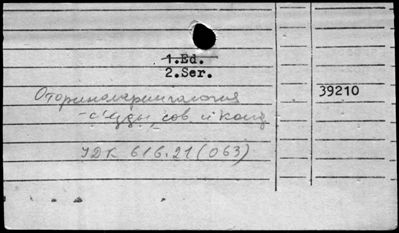 1.Ed.
2.Ser.
Оториноларингология 39210
-съезды, сов. и конф
УДК 616.21(063)